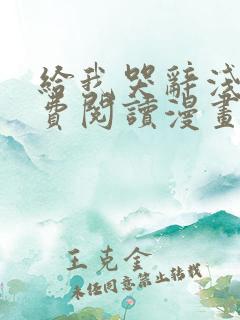 給我哭辭淺
費閱讀漫畫
王克金
未经同意禁止转载